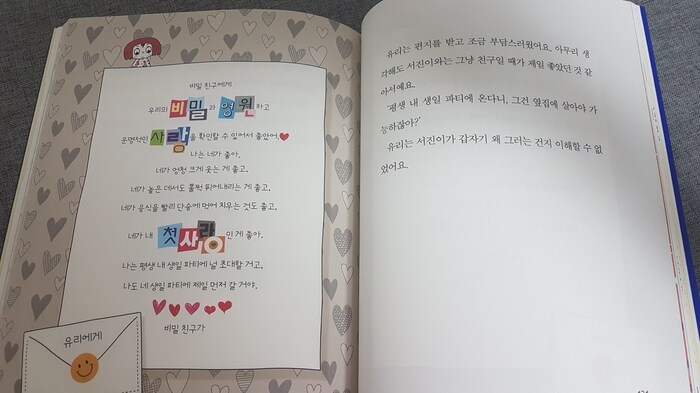 비밀 친구에게
우리의 비밀과 영원하고
운명적인 사랑을 확인할 수 있어서 좋았어.
나는 네가 좋아.
네가 엄청 크게 웃는 게 좋고,
네가 높은 데서도 훌쩍 뛰어내리는 게 좋고,
네가 음식을 빨리 단숨에 먹어 치우는 것도 좋고,
네가 내 첫사랑인 게 좋아.
나는 평생 내 생일 파티에 널 초대할 거고,
나도 네 생일 파티에 제일 먼저 갈 거야.
비밀 친구가
유리에게
유리는 편지를 받고 조금 부담스러웠어요. 아무리 생
각해도 서진이와는 그냥 친구일 때가 제일 좋았던 것 같
아서예요.
'평생 내 생일 파티에 온다니, 그건 옆집에 살아야 가
능하잖아?'
유리는 서진이가 갑자기 왜 그러는 건지 이해할 수 없
었어요.